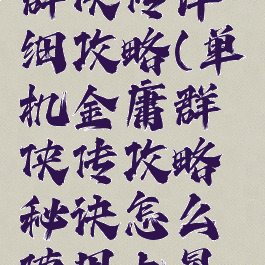 群侠传详
细攻略(单
机金庸群
侠传攻略
秘诀怎么